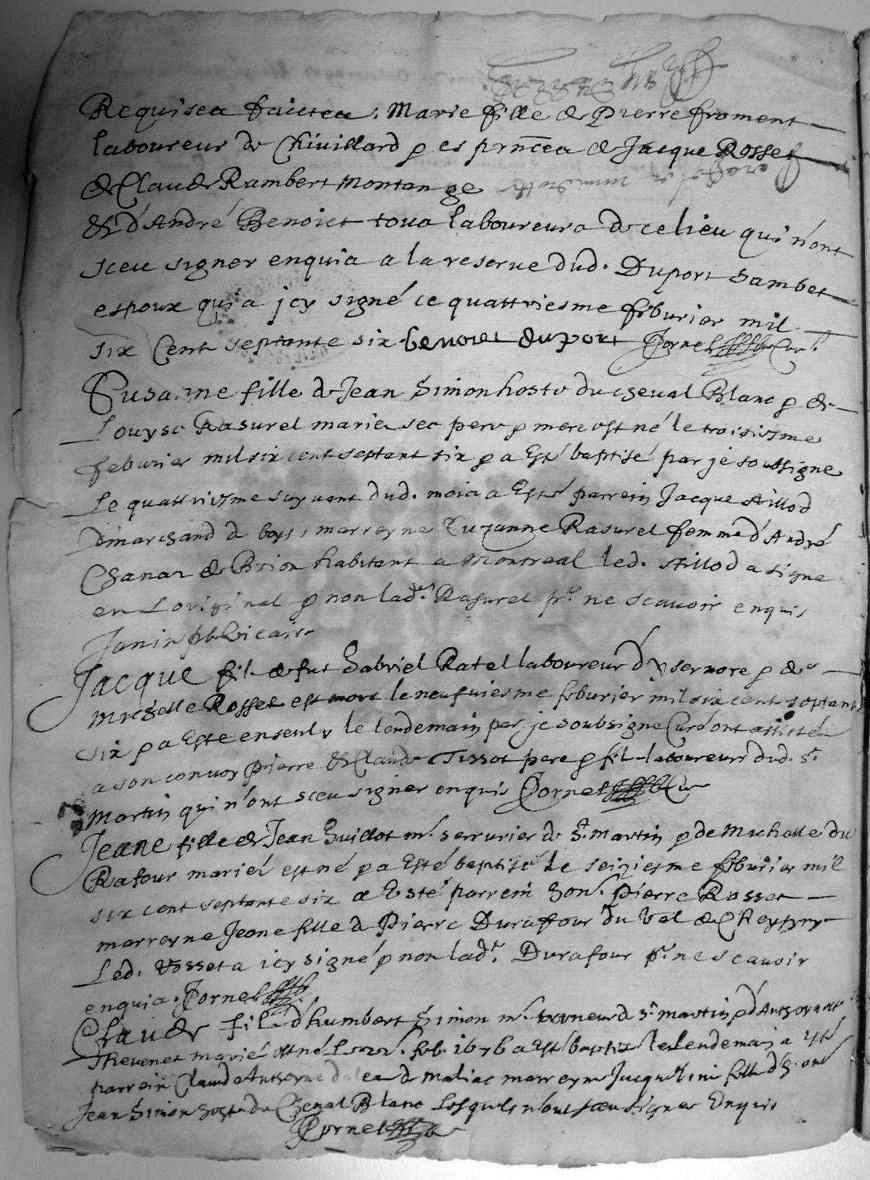 Requises faictes, Marie fille de Pierre froment
laboureur de Chivillard p es prñcea de Jacque Rosset
de Claude Rambert montange
& d'André Benoict tous laboureurs de ce lieu qui n'ont
sceu signer enquis a la reserve dud. Duport Sambet
espoux qui a icy signé ce quattriesme feburier mil
six Cent septante six benoict duport Cornet Cur.
Susanne fille de Jean Simon hoste du cheval Blanc & de
Louyse Rasurel maries ses pere & mere est né le troisiesme
feburier mil six cent septant six & a Esté baptisé par je soubsigne
Le quattriesme suyvant dud. mois a Esté parrein Jacque Aillod
marchand de boys, marreyne Suzanne Rasurel femme d'André
Chanar de Brion habitant a Montreal led. Aillod a signe
en Loriginal & non lad. Rasurel pr. ne scavoir enquis
Janin vicaire
Jacque fil de fut Gabriel Ratel laboureur & de
Michelle Rosset est mort le neufviesme feburier mil six cent septante
six & a Esté enseuly le lendemain par je soubsigne Curé ont assisté
a son convoy Pierre & Claude Tissot pere & fil laboureurs dud. St.
Martin qui n'ont sceu signer enquis Cornet Cur
Jeane fille de Jean Guillot mr. serrurier de St. martin & de Michelle du
Rafour mariés est né & a Esté baptisé Le seiziesme feburier mil
six cent septante six a Esté parrein hon. Pierre Rosset
marreyne Jeane fille de Pierre Durafour du Val de
Led. Rosset a icy signé & non lad. Durafour pr. ne scavoir
enquis. Cornet
Claude fil d'humbert Simon mr. St martin &
Thevenet marié est né feb. 1676 a Esté baptisé le lendemain a Esté
parrein Claude de marreyne Jacqueline fille d'h.
Jean Simon hoste du Cheval Blanc Lesquels n'ont sceu signer Enquis
Cornet